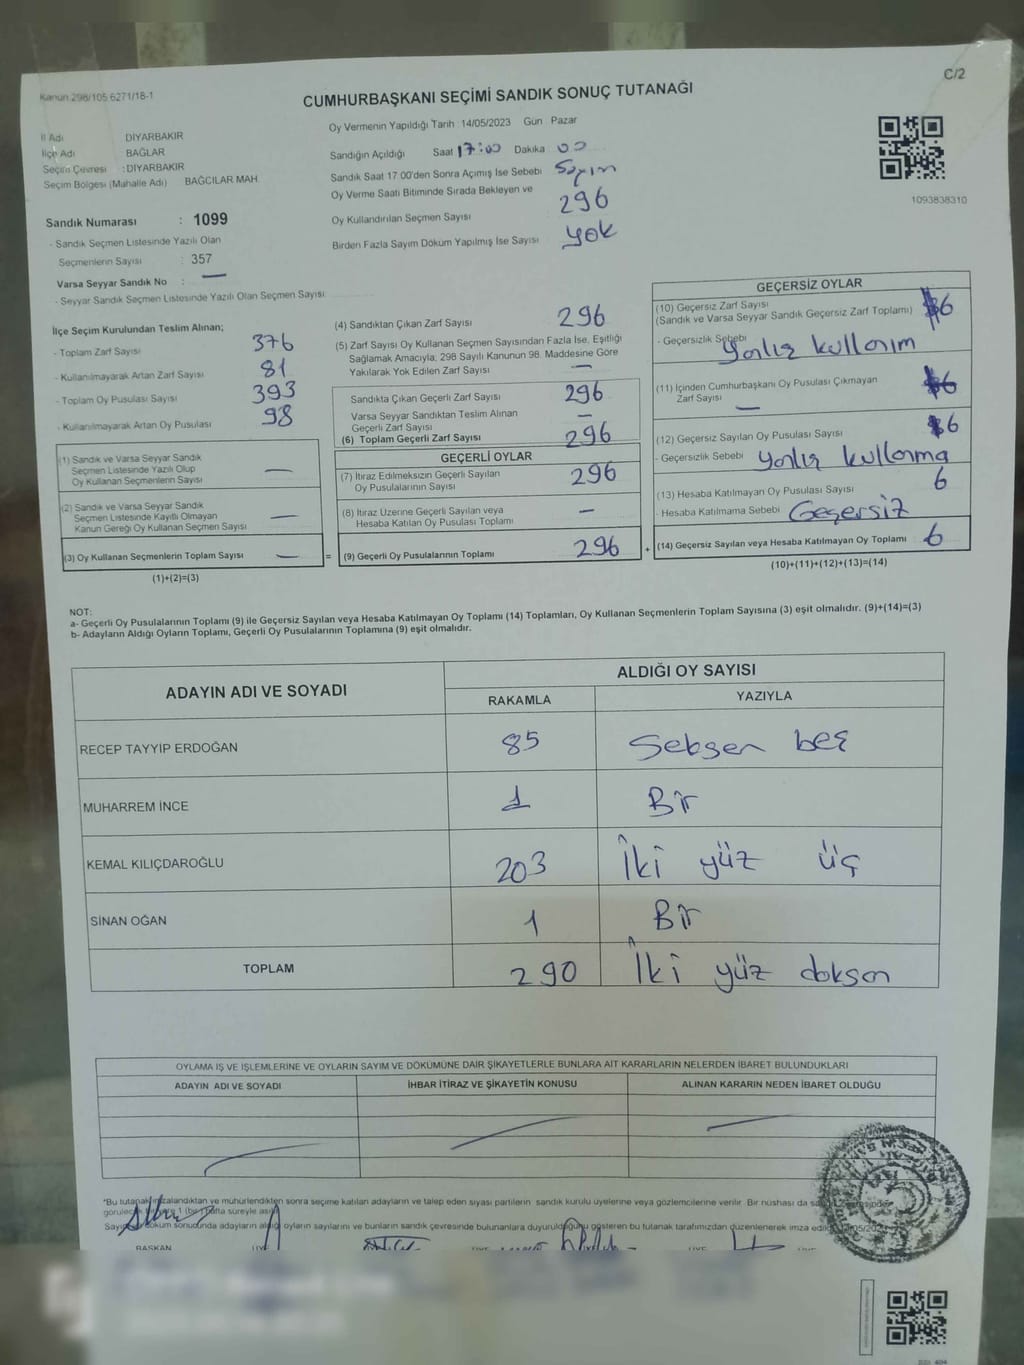 Kanun 298/105 6271/18-1
C/2
CUMHURBAŞKANI SEÇİMİ SANDIK SONUÇ TUTANAĞI
İl Adı DİYARBAKIR
İlçe Adı BAĞLAR
Seçim Çevresi : DİYARBAKIR
Seçim Bölgesi (Mahalle Adı) BAĞCILAR MAH.
Sandık Numarası : 1099
- Sandık Seçmen Listesinde Yazılı Olan
Seçmenlerin Sayısı : 357
Varsa Seyyar Sandık No : —
- Seyyar Sandık Seçmen Listesinde Yazılı Olan Seçmen Sayısı
Oy Vermenin Yapıldığı Tarih : 14/05/2023 Gün Pazar
Sandığın Açıldığı Saat 17:00 Dakika 00
Sandık Saat 17:00'den Sonra Açımış İse Sebebi Sayım
Oy Verme Saati Bitiminde Sırada Bekleyen ve
Oy Kullandırılan Seçmen Sayısı 296
Birden Fazla Sayım Döküm Yapılmış İse Sayısı yok
1093838310
İlçe Seçim Kurulundan Teslim Alınan;
- Toplam Zarf Sayısı 376
- Kullanılmayarak Artan Zarf Sayısı 81
- Toplam Oy Pusulası Sayısı 393
- Kullanılmayarak Artan Oy Pusulası 98
(1) Sandık ve Varsa Seyyar Sandık
Seçmen Listesinde Yazılı Olup
Oy Kullanan Seçmenlerin Sayısı —
(2) Sandık ve Varsa Seyyar Sandık
Seçmen Listesinde Kayıtlı Olmayan
Kanun Gereği Oy Kullanan Seçmen Sayısı —
(3) Oy Kullanan Seçmenlerin Toplam Sayısı — =
(1)+(2)=(3)
(4) Sandıktan Çıkan Zarf Sayısı 296
(5) Zarf Sayısı Oy Kullanan Seçmen Sayısından Fazla İse, Eşitliği
Sağlamak Amacıyla; 298 Sayılı Kanunun 98. Maddesine Göre
Yakılarak Yok Edilen Zarf Sayısı —
Sandıkta Çıkan Geçerli Zarf Sayısı 296
Varsa Seyyar Sandıktan Teslim Alınan
Geçerli Zarf Sayısı —
(6) Toplam Geçerli Zarf Sayısı 296
GEÇERLİ OYLAR
(7) İtiraz Edilmeksizin Geçerli Sayılan
Oy Pusulalarının Sayısı 296
(8) İtiraz Üzerine Geçerli Sayılan veya
Hesaba Katılan Oy Pusulası Toplamı —
(9) Geçerli Oy Pusulalarının Toplamı 296 +
GEÇERSİZ OYLAR
(10) Geçersiz Zarf Sayısı
(Sandık ve Varsa Seyyar Sandık Geçersiz Zarf Toplamı) 6
- Geçersizlik Sebebi yanlış kullanım
(11) İçinden Cumhurbaşkanı Oy Pusulası Çıkmayan
Zarf Sayısı —
(12) Geçersiz Sayılan Oy Pusulası Sayısı 6
- Geçersizlik Sebebi yanlış kullanma
(13) Hesaba Katılmayan Oy Pusulası Sayısı 6
- Hesaba Katılmama Sebebi Geçersiz
(14) Geçersiz Sayılan veya Hesaba Katılmayan Oy Toplamı 6
(10)+(11)+(12)+(13)=(14)
NOT:
a- Geçerli Oy Pusulalarının Toplamı (9) ile Geçersiz Sayılan veya Hesaba Katılmayan Oy Toplamı (14) Toplamları, Oy Kullanan Seçmenlerin Toplam Sayısına (3) eşit olmalıdır. (9)+(14)=(3)
b- Adayların Aldığı Oyların Toplamı, Geçerli Oy Pusulalarının Toplamına (9) eşit olmalıdır.
ADAYIN ADI VE SOYADI ALDIĞI OY SAYISI
RAKAMLA YAZIYLA
RECEP TAYYİP ERDOĞAN 85 Seksen beş
MUHARREM İNCE 1 Bir
KEMAL KILIÇDAROĞLU 203 İki yüz üç
SİNAN OĞAN 1 Bir
TOPLAM 290 İki yüz doksan
OYLAMA İŞ VE İŞLEMLERİNE VE OYLARIN SAYIM VE DÖKÜMÜNE DAİR ŞİKAYETLERLE BUNLARA AİT KARARLARIN NELERDEN İBARET BULUNDUKLARI
ADAYIN ADI VE SOYADI İHBAR İTİRAZ VE ŞİKAYETİN KONUSU ALINAN KARARIN NEDEN İBARET OLDUĞU
"Bu tutanak imzalandıktan ve mühürlendikten sonra seçime katılan adayların ve talep eden siyasi partilerin sandık kurulu üyelerine veya gözlemcilerine verilir. Bir nüshası da
1 (bir) hafta süreyle
döküm sonucunda adayların aldığı oyların sayılarını ve bunların sandık çevresinde bulunanlara duyurulduğunu gösteren bu tutanak tarafımızdan düzenlenerek imza
BAŞKAN